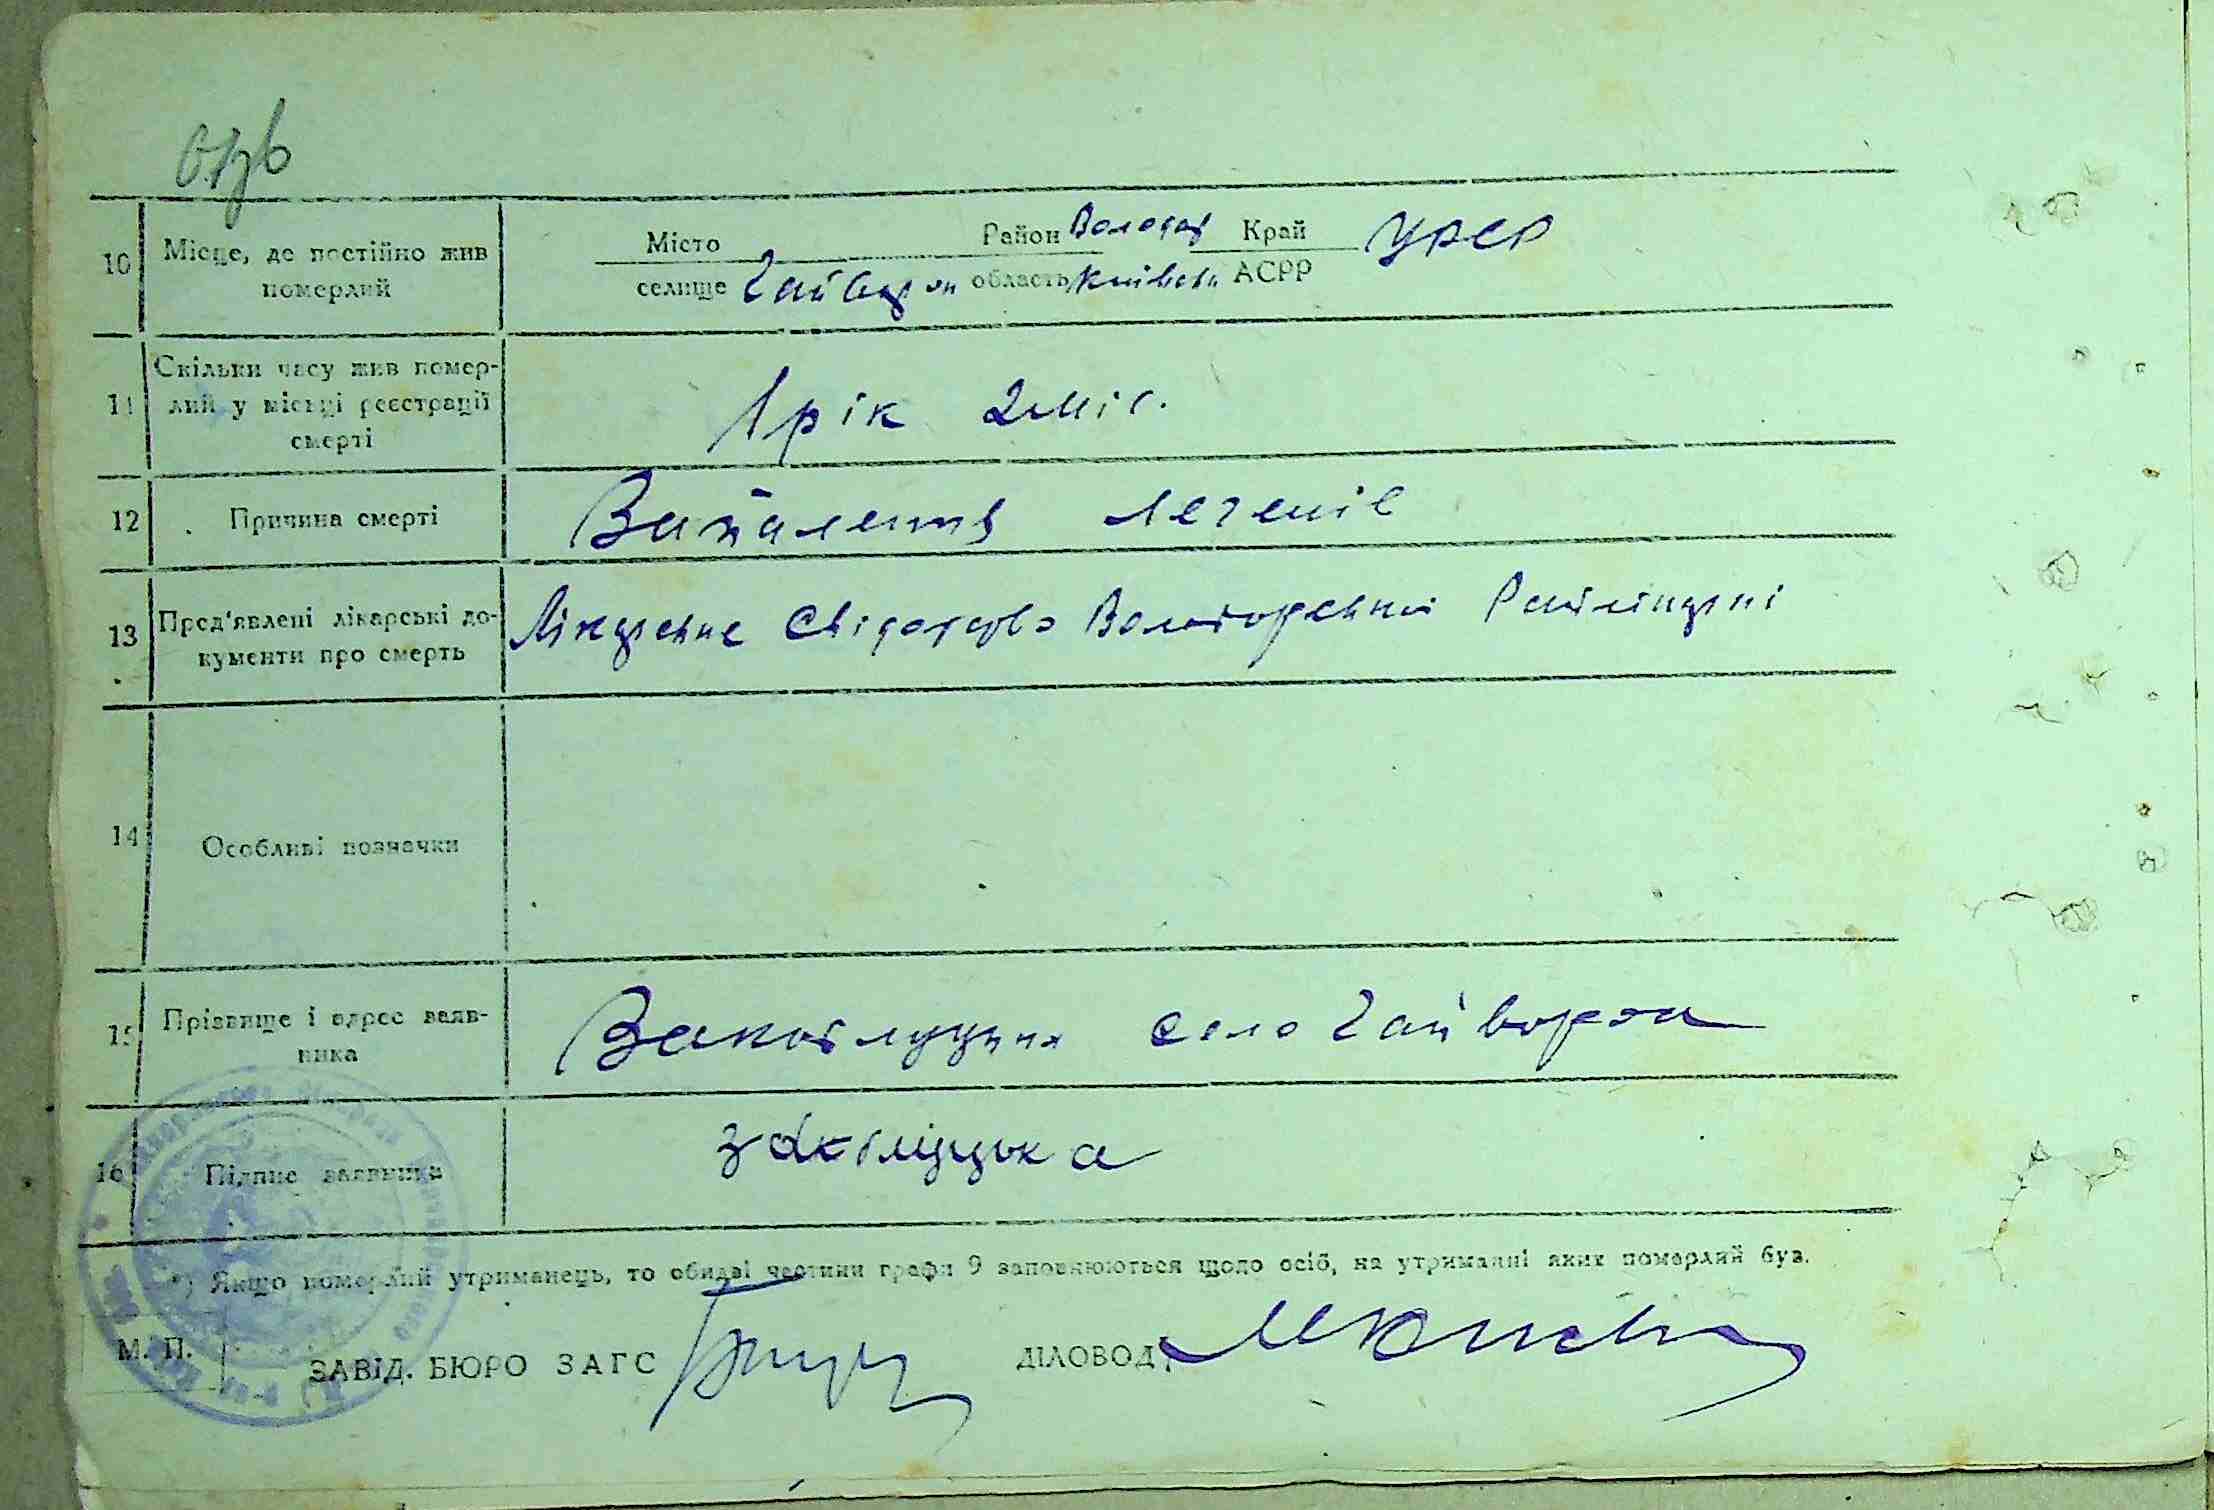 10 Місце, де постійно жив померлий
Місто Район Володар Край УРСР
селище Гайворон область Київськ АСРР
11 Скільки часу жив померлий у місьці реєстрації смерті
1 рік 2 міс.
12 Причина смерті
Запалення легенів
13 Пред'явлені лікарські документи про смерть
Лікарське Свідотство Володарської Райлікарні
14 Особливі позначки
15 Прізвище і адрес заявника
село Гайворон
16 Підпис заявника
*) Якщо померлий утриманець, то обидві частини графи 9 заповнюються щодо осіб, на утриманні яких померлий був.
М. П.
ЗАВІД. БЮРО ЗАГС
ДІЛОВОД